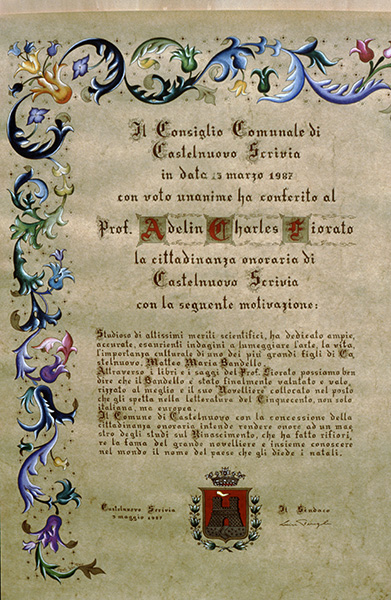 Il Consiglio Comunale di
Castelnuovo Scrivia
in data 13 marzo 1987
con voto unanime ha conferito al
Prof. Adelin Charles Fiorato
la cittadinanza onoraria di
Castelnuovo Scrivia
con la seguente motivazione:
Studioso di altissimi meriti scientifici, ha dedicato ampie,
accurate, esaurienti indagini a lumeggiare l'arte, la vita,
l'importanza culturale di uno dei piu' grandi figli di Ca
stelnuovo, Matteo Maria Bandello.
Attraverso i libri e i saggi del Prof. Fiorato possiamo ben
dire che il Bandello è stato finalmente valutato e valo,
rizzato al meglio e il suo "Novelliere" collocato nel posto
che gli spetta nella letteratura del Cinquecento, non solo
italiana, ma europea.
Il Comune di Castelnuovo con la concessione della
cittadinanza onoraria intende rendere onore ad un mae
stro degli studi sul Rinascimento, che ha fatto rifiori,
re la fama del grande novelliere e insieme conoscere
nel mondo il nome del paese che gli diede i natali.
Castelnuovo Scrivia
7 maggio 1987
Il Sindaco